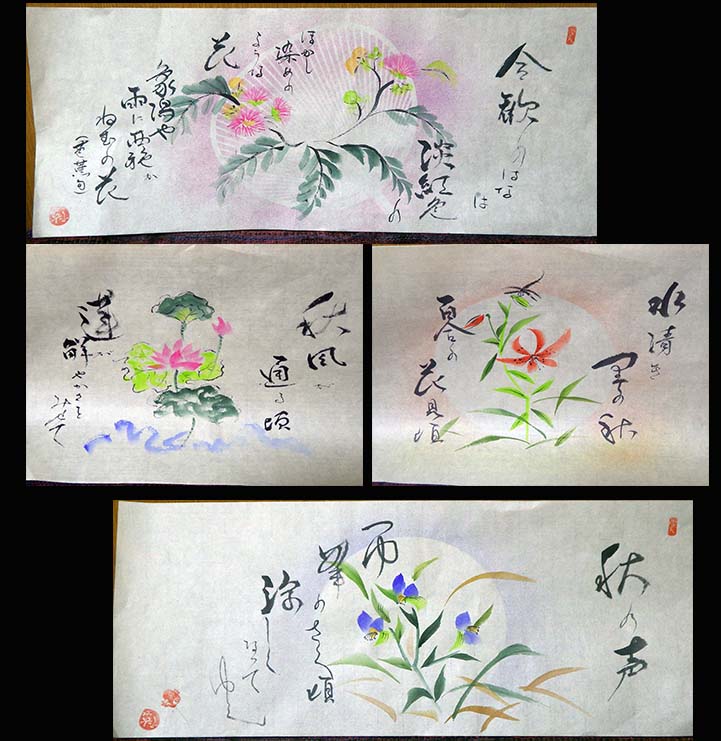 合歓のはな
は
淡紅色の
ぼかし
染めの
ような
花
象潟や
雨に西施が
ねむの花
芭蕉句
秋風が
通る頃
蓮が
鮮やかさを
みせて
水清き
里の秋
百合の
花見頃
秋の声
のさく頃
涼しく
なって
ゆく